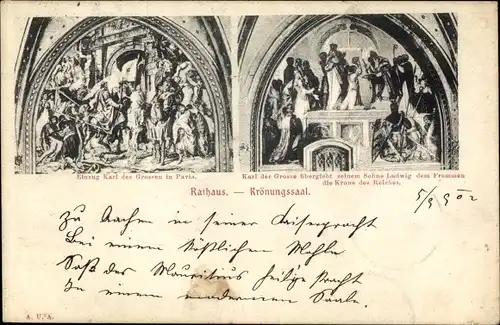 Einzug Karl des Grossen in Pavia.
Karl der Grosse übergiebt seinem Sohne Ludwig dem Frommen
die Krone des Reiches.
Rathaus. — Krönungssaal.
5/8 902
Zu Aachen in seiner Kaiserpracht
Bei einem köstlichen Mahle
Saß des Mauritius heilige Macht
In einem modernen Saale.
A. U. A.